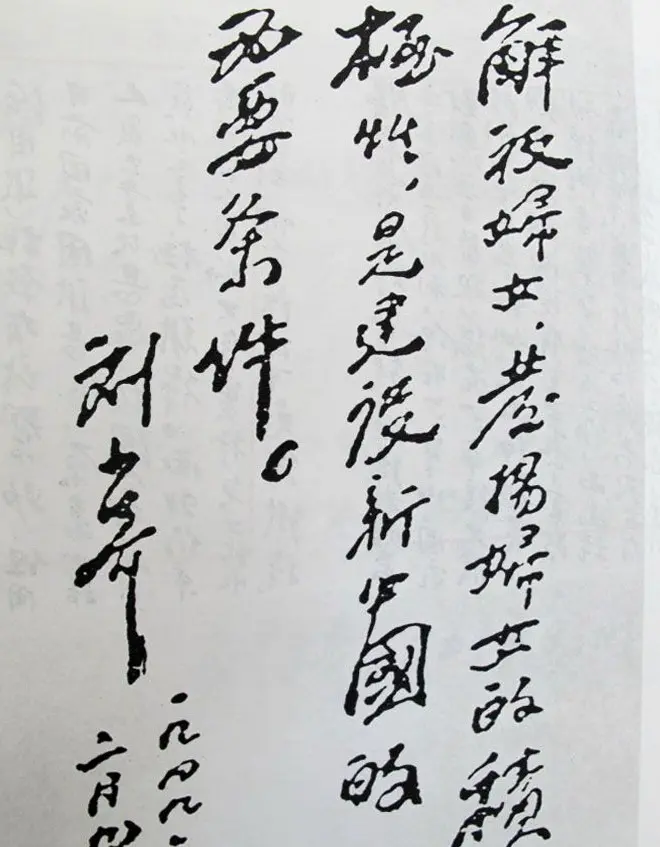 解放婦女，发揚婦女的積
極性，是建設新中國的
必要条件。
刘少奇
一九四九、
二月